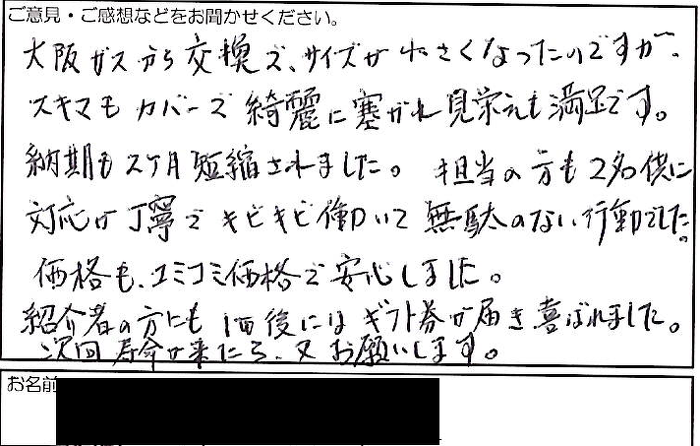 ご意見・ご感想などをお聞かせください。
大阪ガスから交換で、サイズが小さくなったのですが、
スキマもカバーで綺麗に塞がれ見栄えも満足です。
納期も2ケ月短縮されました。担当の方も2名供に
対応が丁寧でキビキビ働いて無駄のない行動でした。
価格も、コミコミ価格で安心しました。
紹介者の方にも1週後にはギフト券が届き喜ばれました。
次回寿命が来たら、又お願いします。
お名前